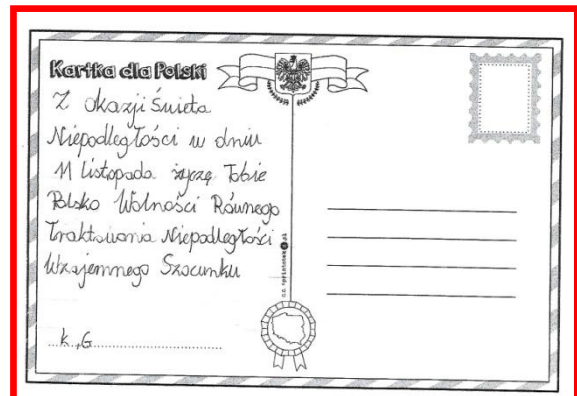 Kartka dla Polski
Z okazji Święta
Niepodległości w dniu
11 Listopada życzę Tobie
Polsko Wolności Równego
Traktowania Niepodległości
Wzajemnego Szacunku
K.,G